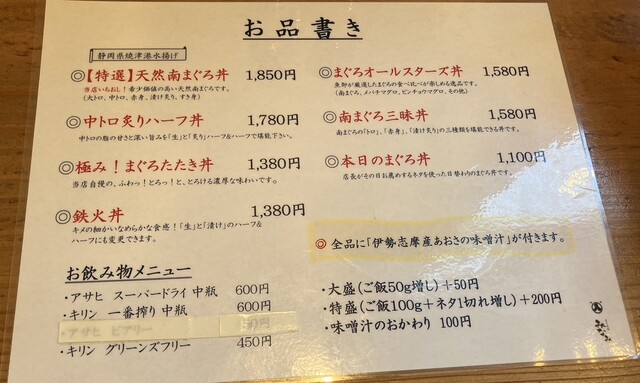 お品書き
静岡県焼津港水揚げ
◎【特選】天然南まぐろ丼 1,850円
当店いちおし!希少価値の高い天然南まぐろです。
(大トロ、中トロ、赤身、漬け炙り、すき身)
◎中トロ炙りハーフ丼 1,780円
中トロの脂の甘さと深い旨みを「生」と「炙り」ハーフ&ハーフで堪能下さい。
◎極み!まぐろたたき丼 1,380円
当店自慢の、ふわっ!とろっ!と、とろける濃厚な味わいです。
◎鉄火丼 1,380円
キメの細かいなめらかな食感!「生」と「漬け」のハーフ&
ハーフにも変更できます。
◎まぐろオールスターズ丼 1,580円
魚卸が厳選したまぐろの食べ比べが楽しめる逸品です。
(南まぐろ、メバチマグロ、ビンチョウマグロ、その他)
◎南まぐろ三昧丼 1,580円
南まぐろの「トロ」、「赤身」、「漬け炙り」の三種類を堪能できる丼です。
◎本日のまぐろ丼 1,100円
店長がその日お薦めするネタを使った日替わりのまぐろ丼です。
◎ 全品に「伊勢志摩産あおさの味噌汁」が付きます。
お飲み物メニュー
・アサヒ スーパードライ 中瓶 600円
・キリン 一番搾り 中瓶 600円
・アサヒ ビアリー
・キリン グリーンズフリー 450円
・大盛(ご飯50g増し)+50円
・特盛(ご飯100g+ネタ1切れ増し)+200円
・味噌汁のおかわり 100円